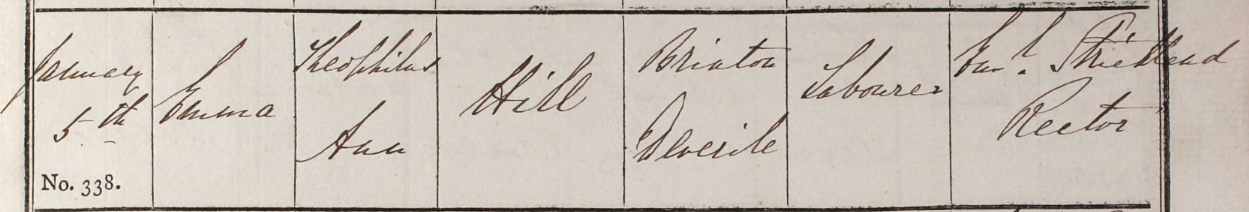 January
5th
No. 338.
Emma
Theophilus
Ann
Hill
Brixton
Deverile
Labourer
Strickland
Rector